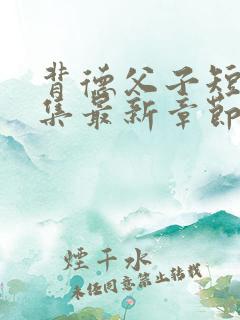 背德父子短
集最新章節
煙千水
未经同意禁止转载